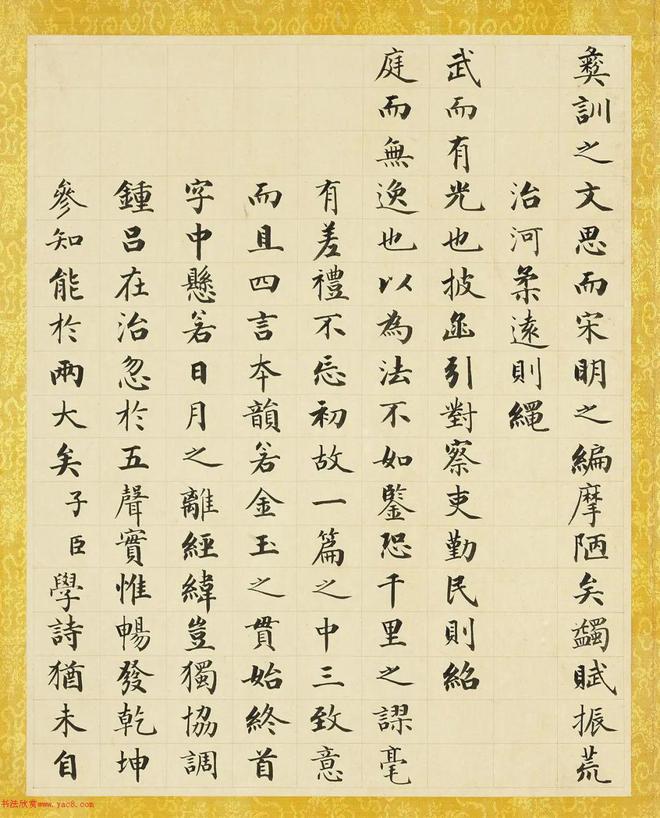 彝訓之文思而宋明之編摩陋矣蠲賦振荒
治河柔遠則繩
武而有光也披函引對察吏勤民則紹
庭而無逸也以為法不如鑒恐千里之謬毫
有差禮不忘初故一篇之中三致意
而且四言本韻若金玉之貫始終首
字中懸若日月之離經緯豈獨協調
鍾呂在治忽於五聲實惟暢發乾坤
參知能於兩大矣子臣學詩猶未自
书法欣赏www.yac8.com